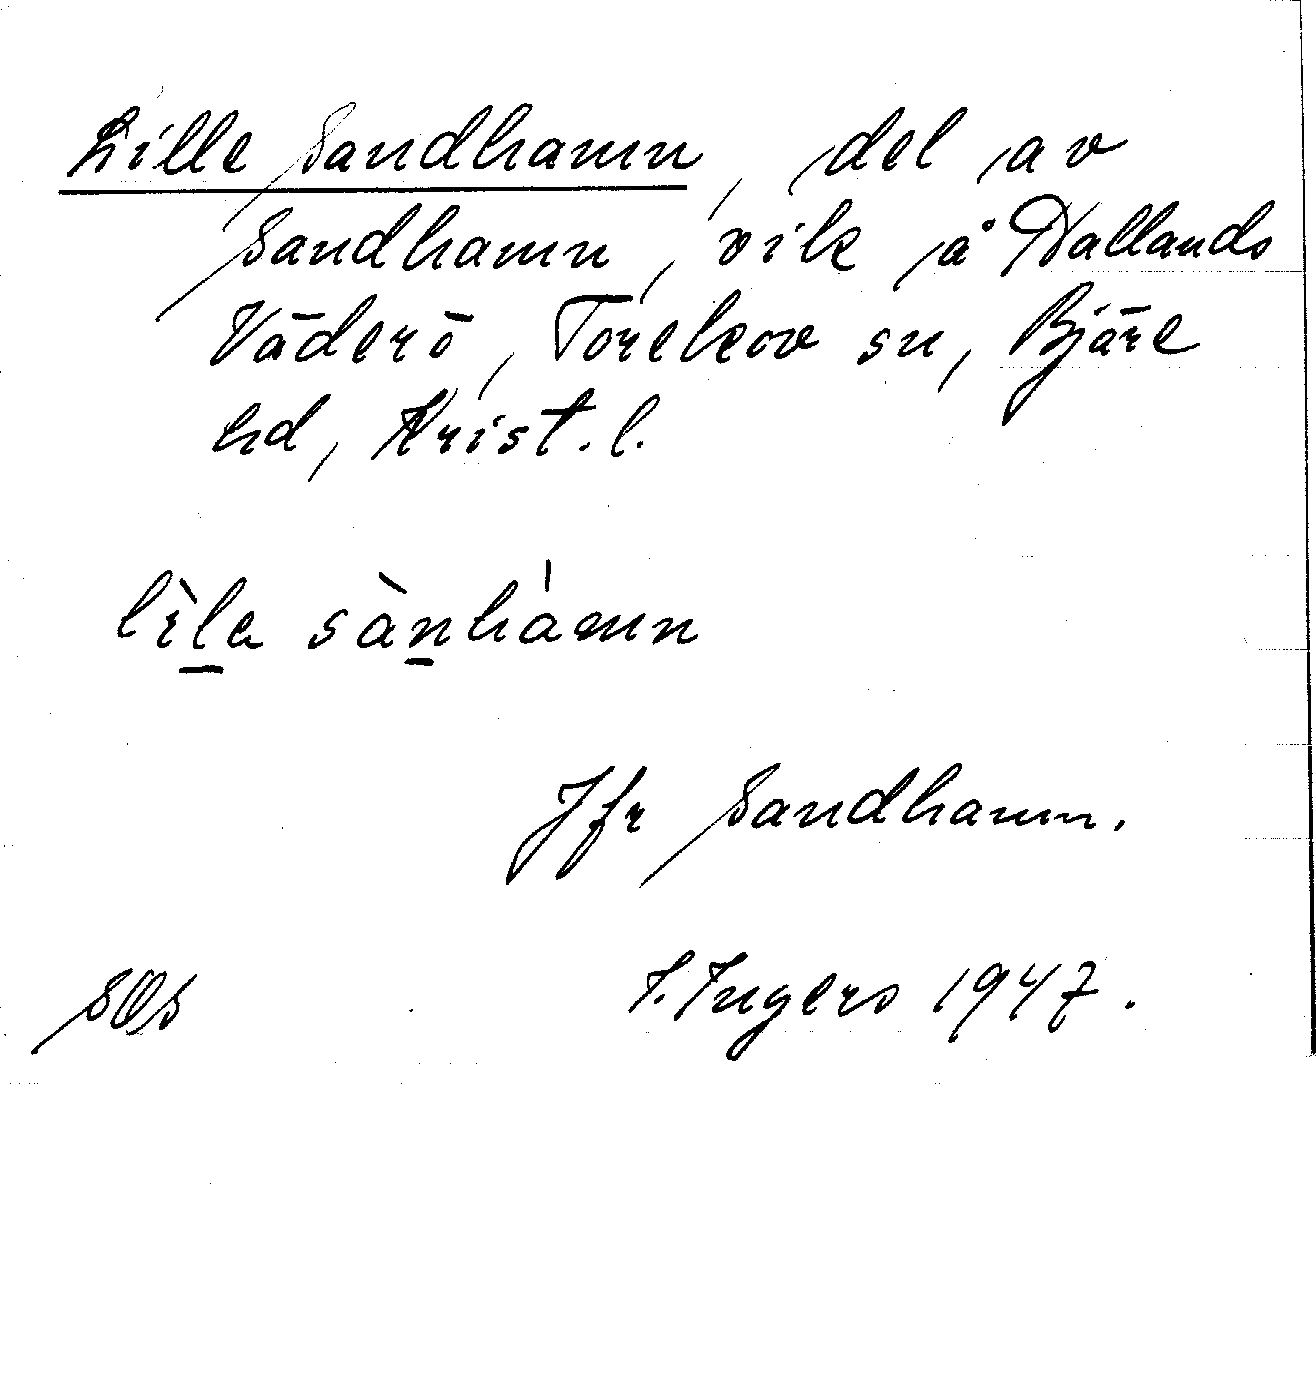 Lille Sandhamn, del av
Sandhamn, vik å Hallands
Väderö, Torekov sn, Bjäre
hd, Krist. l.
lìla sànhàmn
Jfr Sandhamn.
SOs I. Ingers 1947.